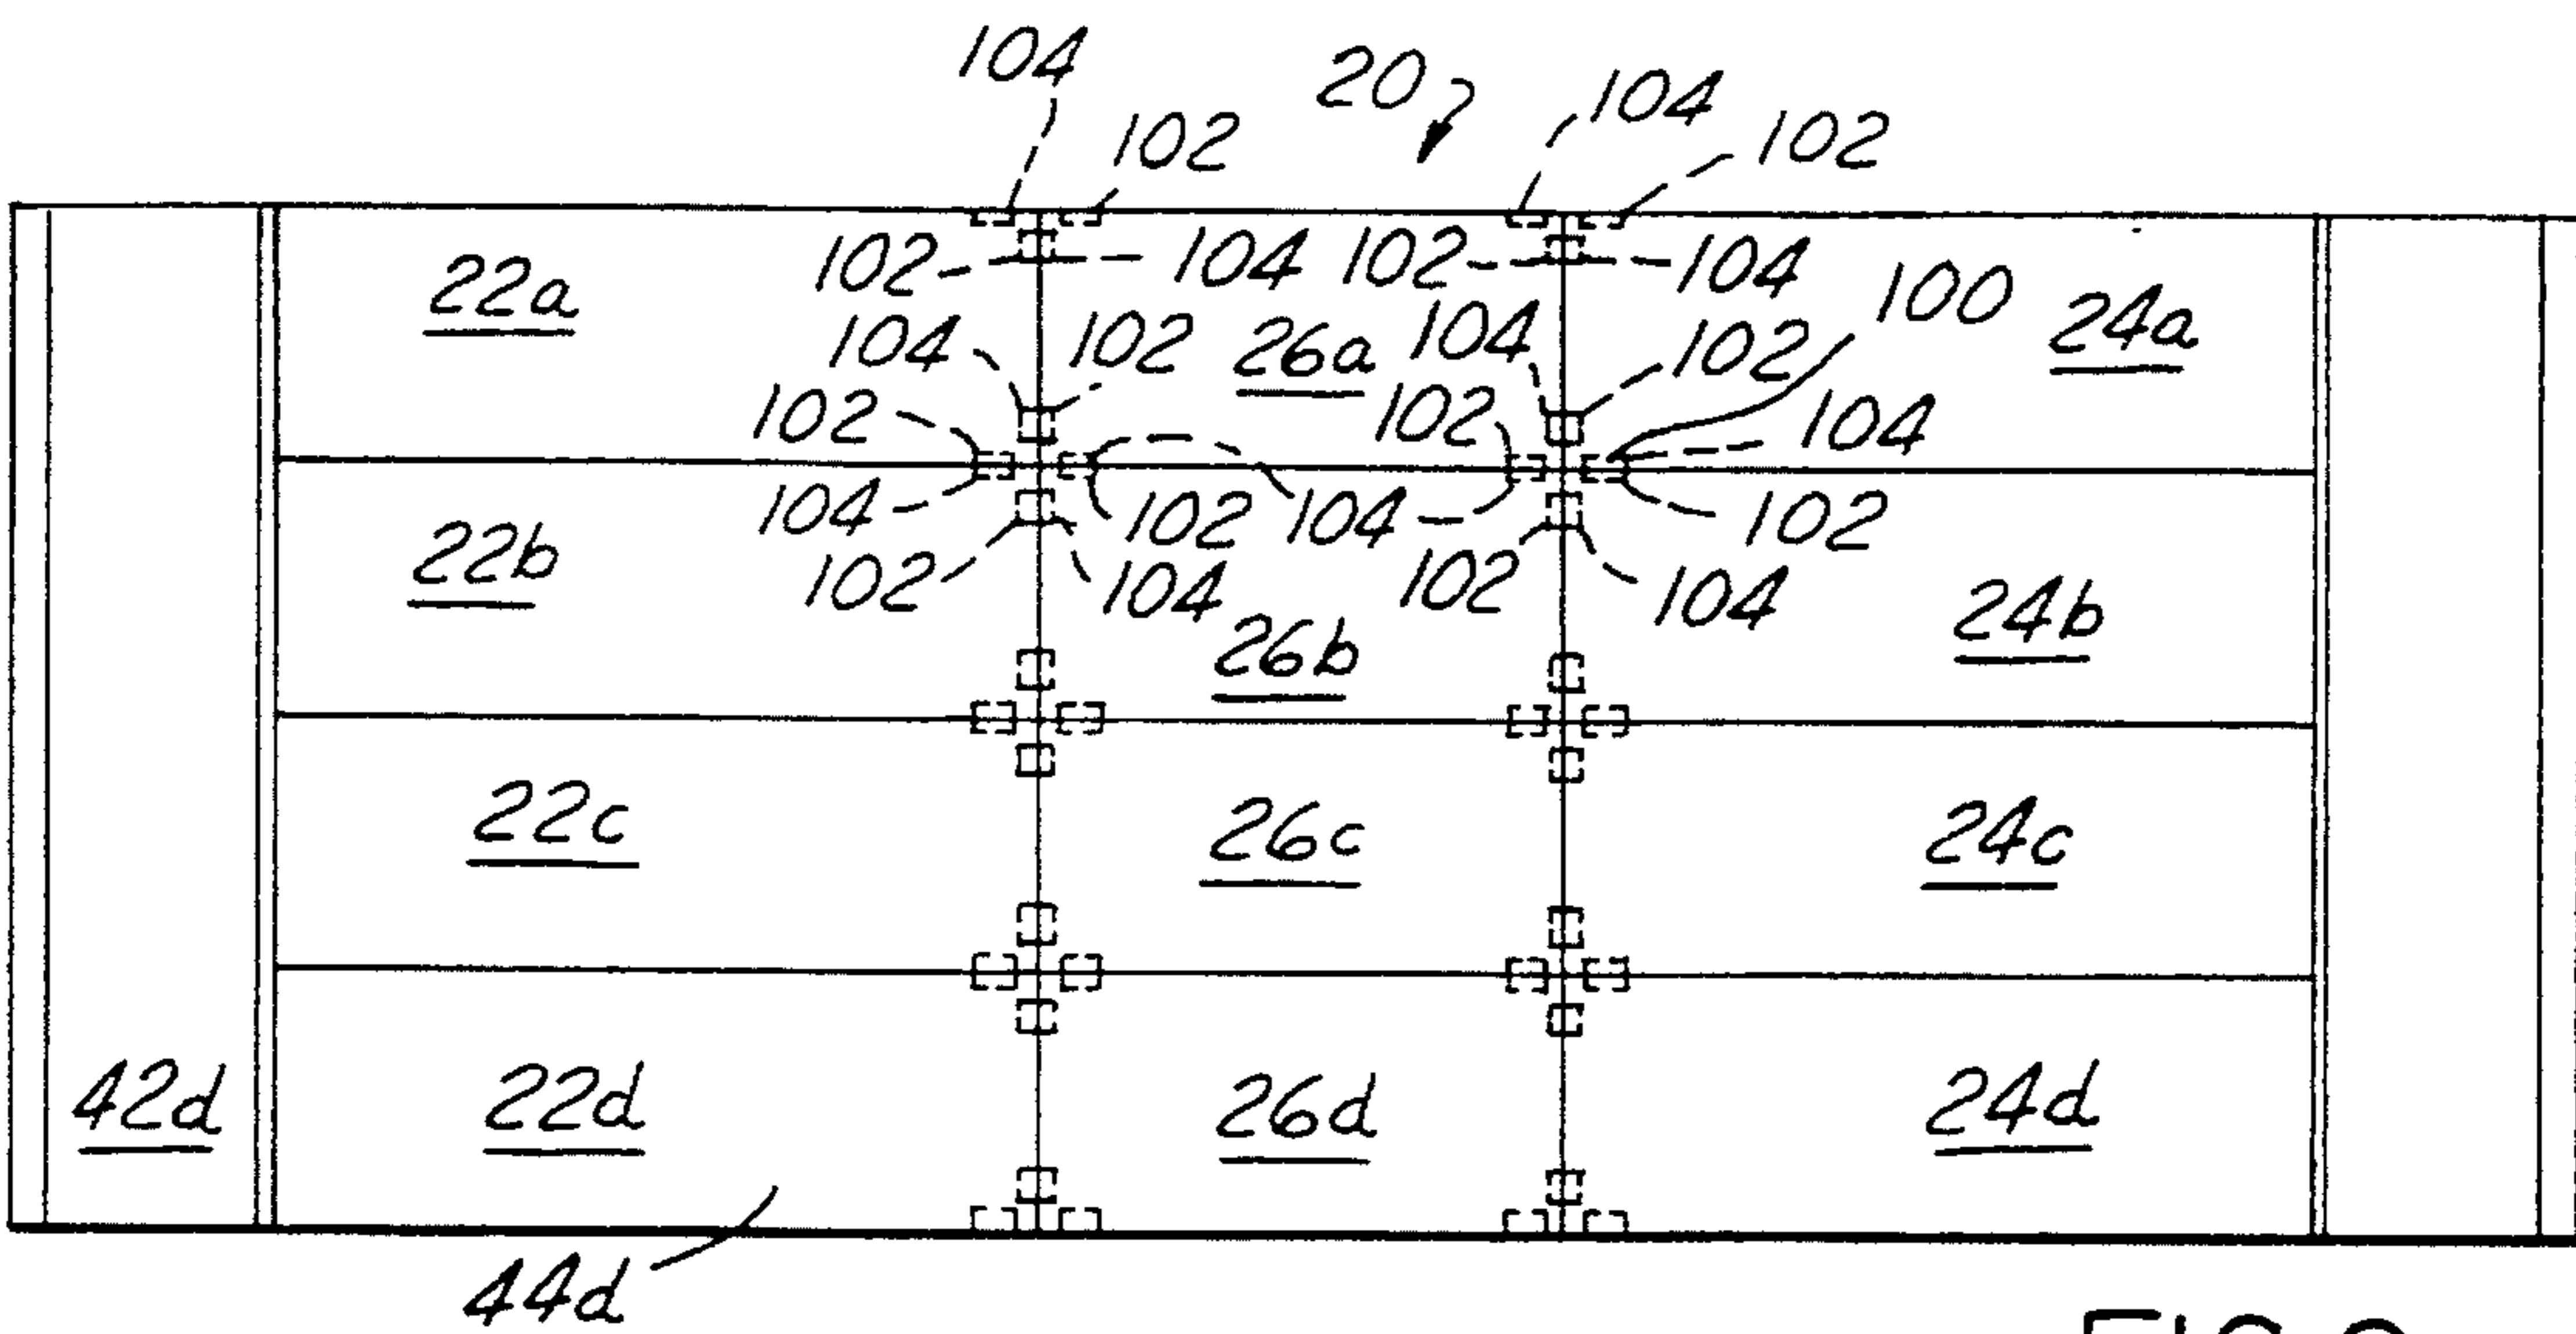 104 20 104
102 102
102 104 102 104 100
22a 24a
104 102 26a 104 102
102 102 104
104 102 104 102
22b 102 104 102 104 24b
26b
22c 26c 24c
42d 22d 26d 24d
44d